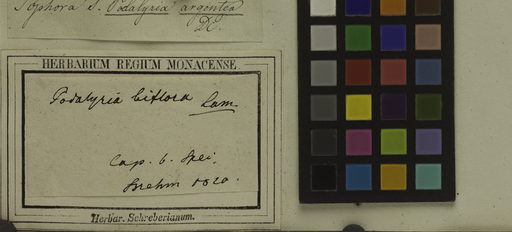 Sophora s. Podalyria argentea
DC.
HERBARIUM REGIUM MONACENSE
Podalyria biflora Lam
Cap. b. Spei.
Brehm
Herbar. Schreberianum.